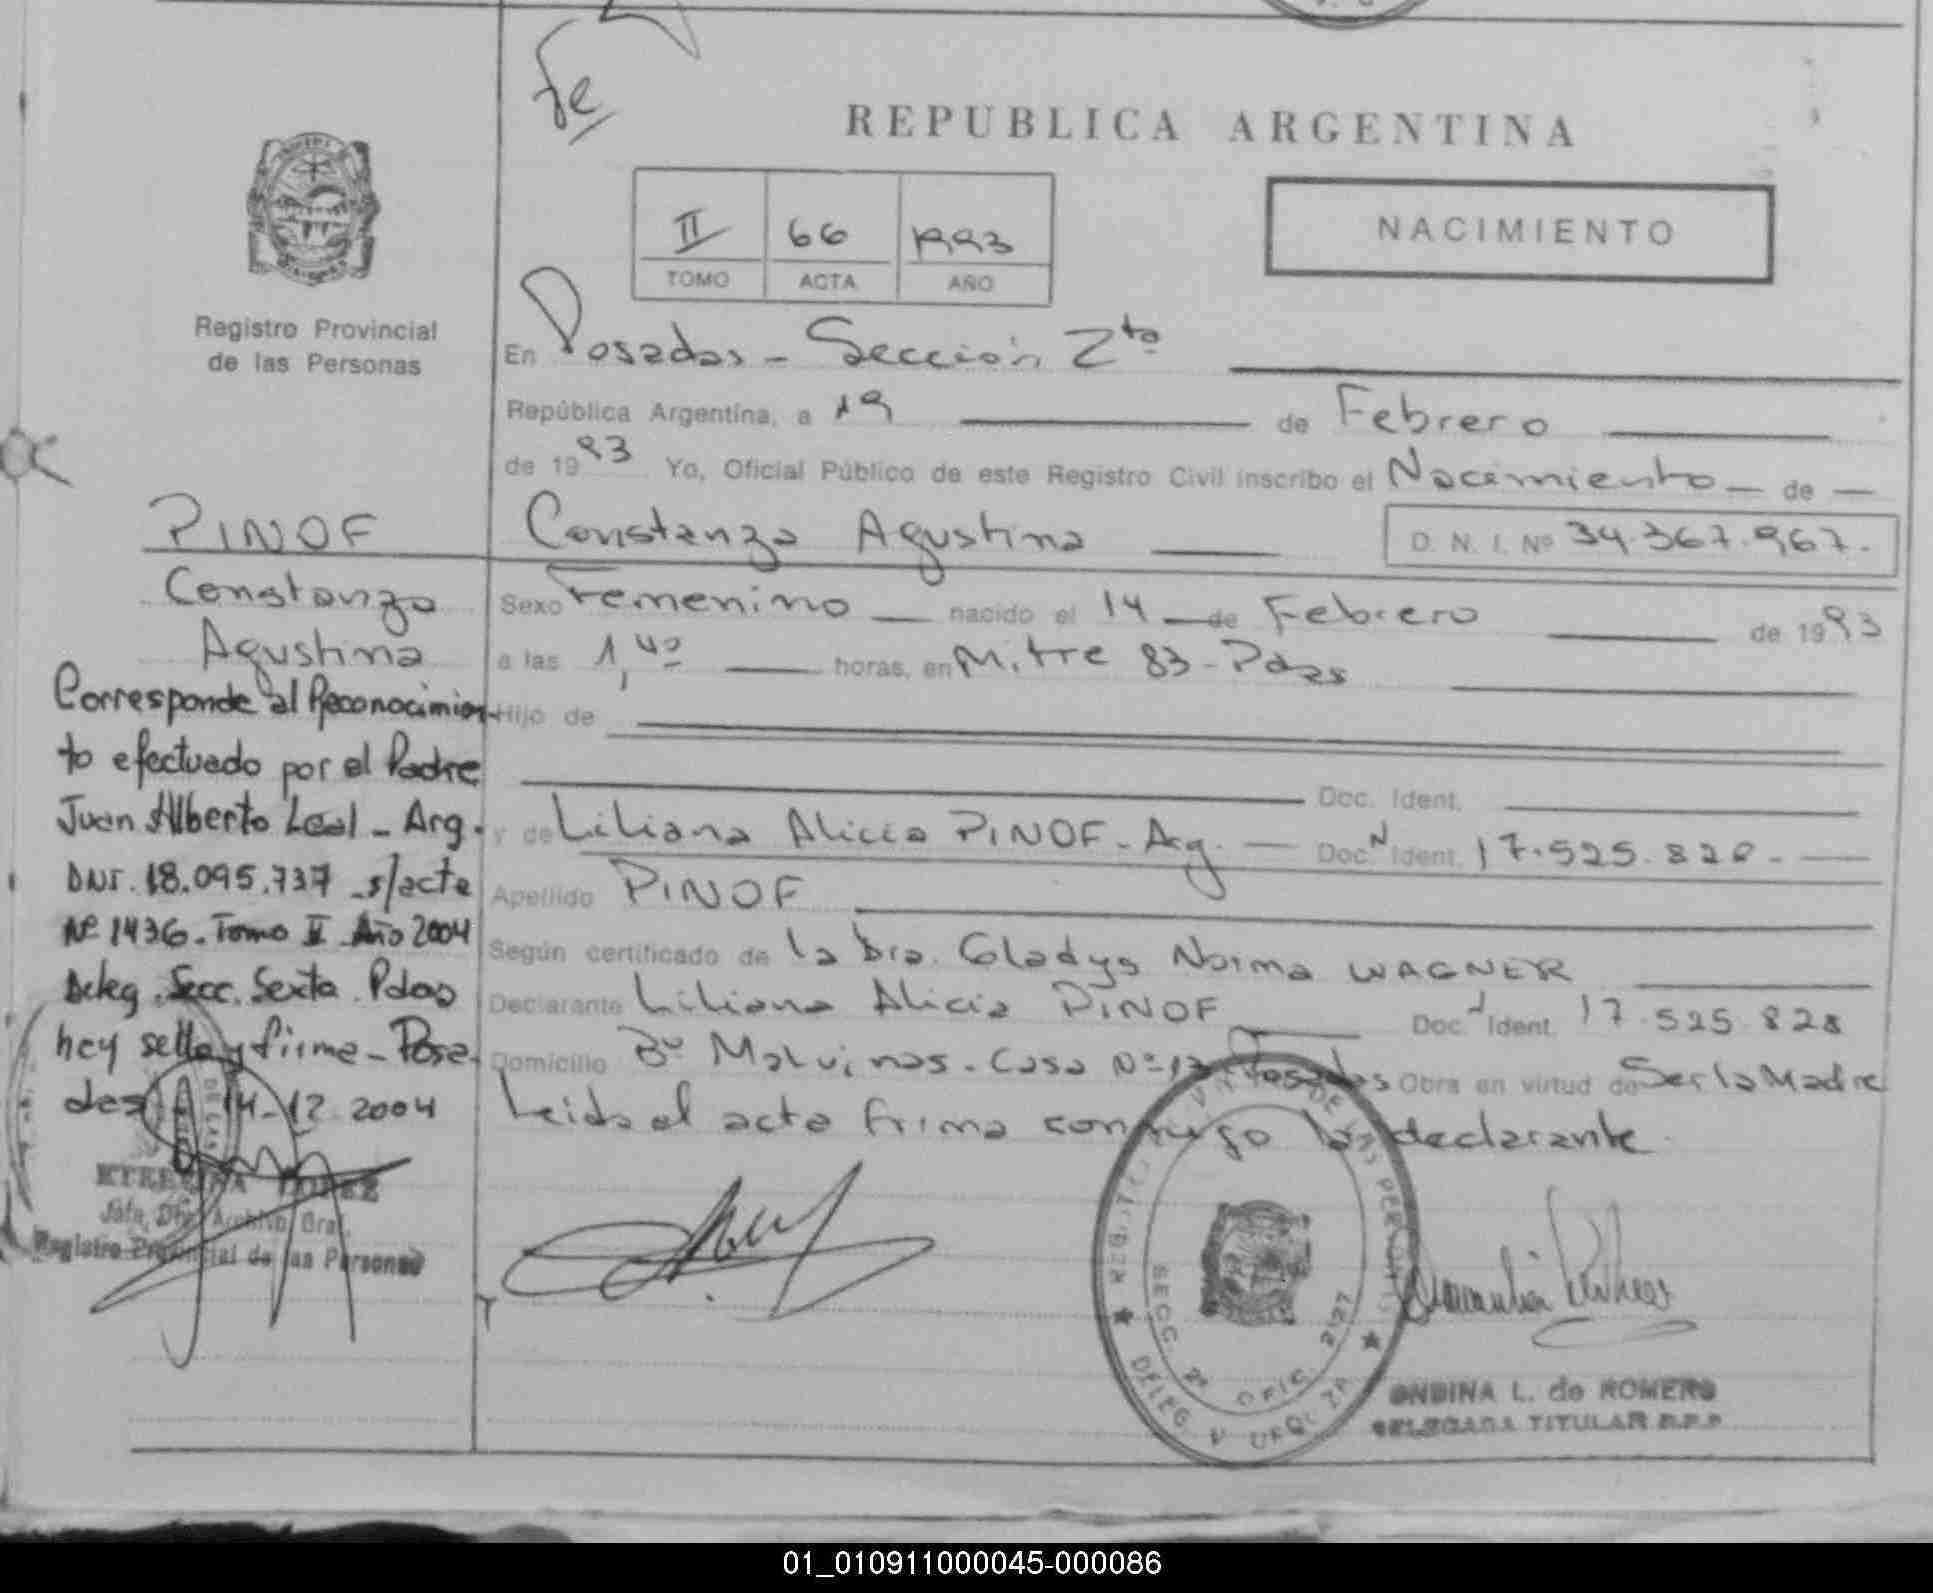 fe
REPUBLICA ARGENTINA
II 66 1993
TOMO ACTA AÑO
NACIMIENTO
Registro Provincial
de las Personas
En Posadas - Sección 2ta
República Argentina, a 19 de Febrero
de 1993 Yo, Oficial Público de este Registro Civil inscribo el Nacimiento - de -
PINOF
Constanza Agustina D. N. I. Nº 34.367.967.
Constanza
Agustina
Sexo Femenino nacido el 14 de Febrero de 1993
a las 1,40 horas, en Mitre 83 - Pdas
Hijo de
Doc. Ident.
y de Liliana Alicia PINOF - Arg. Doc. N Ident. 17.525.828.
Apellido PINOF
Según certificado de la Dra. Gladys Norma WAGNER
Declarante Liliana Alicia PINOF Doc. Ident. 17.525.828
Domicilio Bº Malvinas - Casa Nº 13 Posadas Obra en virtud de Ser la Madre
Leida el acta firma conmigo la declarante.
Corresponde al Reconocimien-
to efectuado por el Padre
Juan Alberto Leal - Arg.
DNI. 18.095.737 - s/acta
Nº 1436 - Tomo II Año 2004
Deleg. Secc. Sexta. Pdas
hay sello y firma - Posa-
das 14-12-2004
Jefa, Dto. Archivo Gral.
Registro Provincial de las Personas
REGISTRO PROVINCIAL DE LAS PERSONAS
SECC. 2ª OFIC. 2127
ONDINA L. de ROMERO
DELEGADA TITULAR R.P.P.
01_010911000045-000086